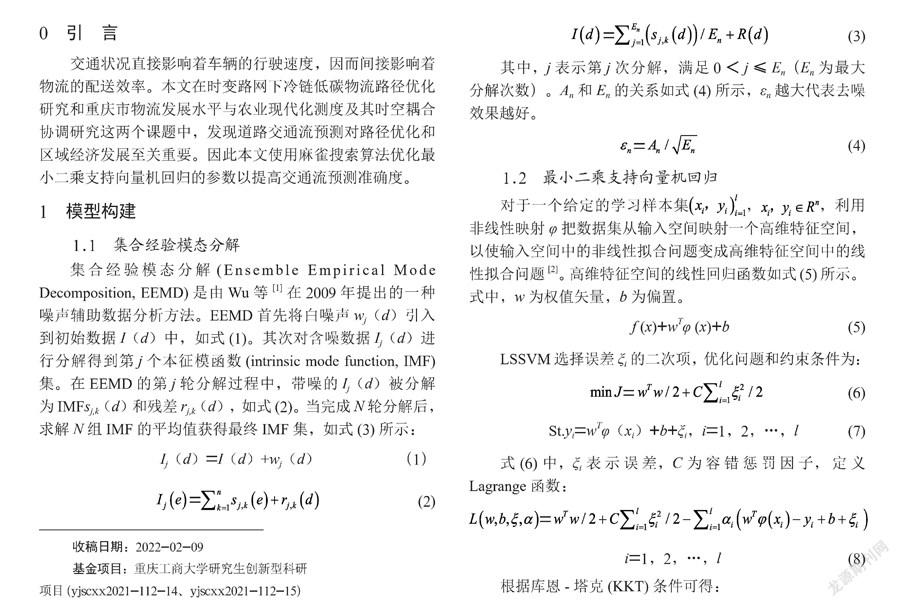 0 引 言
交通状况直接影响着车辆的行驶速度，因而间接影响着
物流的配送效率。本文在时变路网下冷链低碳物流路径优化
研究和重庆市物流发展水平与农业现代化测度及其时空耦合
协调研究这两个课题中，发现道路交通流预测对路径优化和
区域经济发展至关重要。因此本文使用麻雀搜索算法优化最
小二乘支持向量机回归的参数以提高交通流预测准确度。
1 模型构建
1.1 集合经验模态分解
集合经验模态分解 (Ensemble Empirical Mode
Decomposition, EEMD) 是由 Wu 等 [1] 在 2009 年提出的一种
噪声辅助数据分析方法。EEMD 首先将白噪声 wj（d）引入
到初始数据 I（d）中，如式 (1)。其次对含噪数据 Ij（d）进
行分解得到第 j 个本征模函数 (intrinsic mode function, IMF)
集。在 EEMD 的第 j 轮分解过程中，带噪的 Ij（d）被分解
为 IMFsj,k（d）和残差 rj,k（d），如式 (2)。当完成 N 轮分解后，
求解 N 组 IMF 的平均值获得最终 IMF 集，如式 (3) 所示：
Ij（d）=I（d）+wj（d） （1）
Ij(e)=∑_{k=1}^{n} sj,k(e)+rj,k(d) (2)
收稿日期：2022-02-09
基金项目：重庆工商大学研究生创新型科研
项目 (yjscxx2021-112-14、yjscxx2021-112-15)
I(d)=∑_{j=1}^{En}(sj,k(d))/En+R(d) (3)
其中，j 表示第 j 次分解，满足 0＜j≤En（En 为最大
分解次数）。An 和 En 的关系如式 (4) 所示，εn 越大代表去噪
效果越好。
εn=An/√En (4)
1.2 最小二乘支持向量机回归
对于一个给定的学习样本集(xi，yi)_{i=1}^{l}，xi，yi∈R^n，利用
非线性映射 φ 把数据集从输入空间映射一个高维特征空间，
以使输入空间中的非线性拟合问题变成高维特征空间中的线
性拟合问题 [2]。高维特征空间的线性回归函数如式 (5) 所示。
式中，w 为权值矢量，b 为偏置。
f (x)+w^Tφ (x)+b (5)
LSSVM 选择误差 ξi 的二次项，优化问题和约束条件为：
min J=w^Tw/2+C∑_{i=1}^{l}ξi^2/2 (6)
St.yi=w^Tφ（xi）+b+ξi，i=1，2，…，l (7)
式 (6) 中，ξi 表示误差，C 为容错惩罚因子，定义
Lagrange 函数：
L(w,b,ξ,α)=w^Tw/2+C∑_{i=1}^{l}ξi^2/2-∑_{i=1}^{l}αi(w^Tφ(xi)-yi+b+ξi)
i=1，2，…，l (8)
根据库恩 - 塔克 (KKT) 条件可得：
龙源期刊网